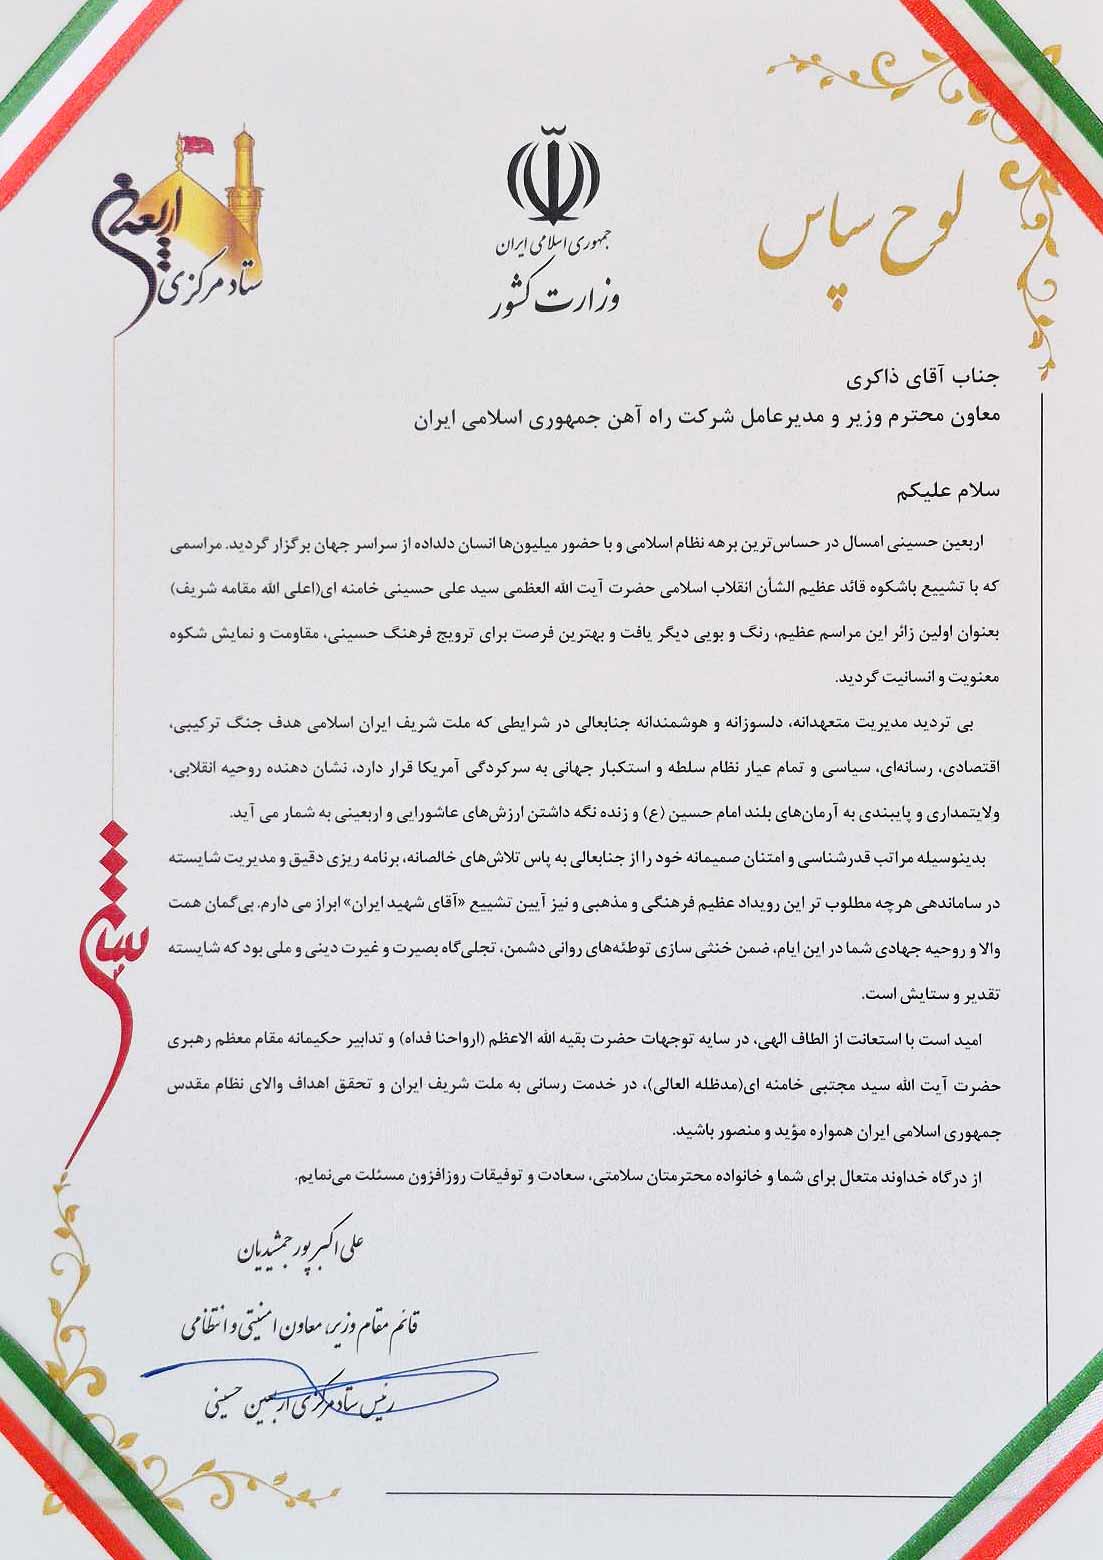 لوح سپاس
جمهوری اسلامی ایران
وزارت کشور
اربعین
ستاد مرکزی
جناب آقای ذاکری
معاون محترم وزیر و مدیرعامل شرکت راه آهن جمهوری اسلامی ایران
سلام علیکم
اربعین حسینی امسال در حساس‌ترین برهه نظام اسلامی و با حضور میلیون‌ها انسان دلداده از سراسر جهان برگزار گردید. مراسمی
که با تشییع باشکوه قائد عظیم الشأن انقلاب اسلامی حضرت آیت الله العظمی سید علی حسینی خامنه ای(اعلی الله مقامه شریف)
بعنوان اولین زائر این مراسم عظیم، رنگ و بویی دیگر یافت و بهترین فرصت برای ترویج فرهنگ حسینی، مقاومت و نمایش شکوه
معنویت و انسانیت گردید.
بی تردید مدیریت متعهدانه، دلسوزانه و هوشمندانه جنابعالی در شرایطی که ملت شریف ایران اسلامی هدف جنگ ترکیبی،
اقتصادی، رسانه‌ای، سیاسی و تمام عیار نظام سلطه و استکبار جهانی به سرکردگی آمریکا قرار دارد، نشان دهنده روحیه انقلابی،
ولایتمداری و پایبندی به آرمان‌های بلند امام حسین (ع) و زنده نگه داشتن ارزش‌های عاشورایی و اربعینی به شمار می آید.
بدینوسیله مراتب قدرشناسی و امتنان صمیمانه خود را از جنابعالی به پاس تلاش‌های خالصانه، برنامه ریزی دقیق و مدیریت شایسته
در ساماندهی هرچه مطلوب تر این رویداد عظیم فرهنگی و مذهبی و نیز آیین تشییع «آقای شهید ایران» ابراز می دارم. بی‌گمان همت
والا و روحیه جهادی شما در این ایام، ضمن خنثی سازی توطئه‌های روانی دشمن، تجلی‌گاه بصیرت و غیرت دینی و ملی بود که شایسته
تقدیر و ستایش است.
امید است با استعانت از الطاف الهی، در سایه توجهات حضرت بقیه الله الاعظم (ارواحنا فداه) و تدابیر حکیمانه مقام معظم رهبری
حضرت آیت الله سید مجتبی خامنه ای(مدظله العالی)، در خدمت رسانی به ملت شریف ایران و تحقق اهداف والای نظام مقدس
جمهوری اسلامی ایران همواره مؤید و منصور باشید.
از درگاه خداوند متعال برای شما و خانواده محترمتان سلامتی، سعادت و توفیقات روزافزون مسئلت می‌نمایم.
علی اکبر پورجمشیدیان
قائم مقام وزیر، معاون امنیتی و انتظامی
رئیس ستاد مرکزی اربعین حسینی